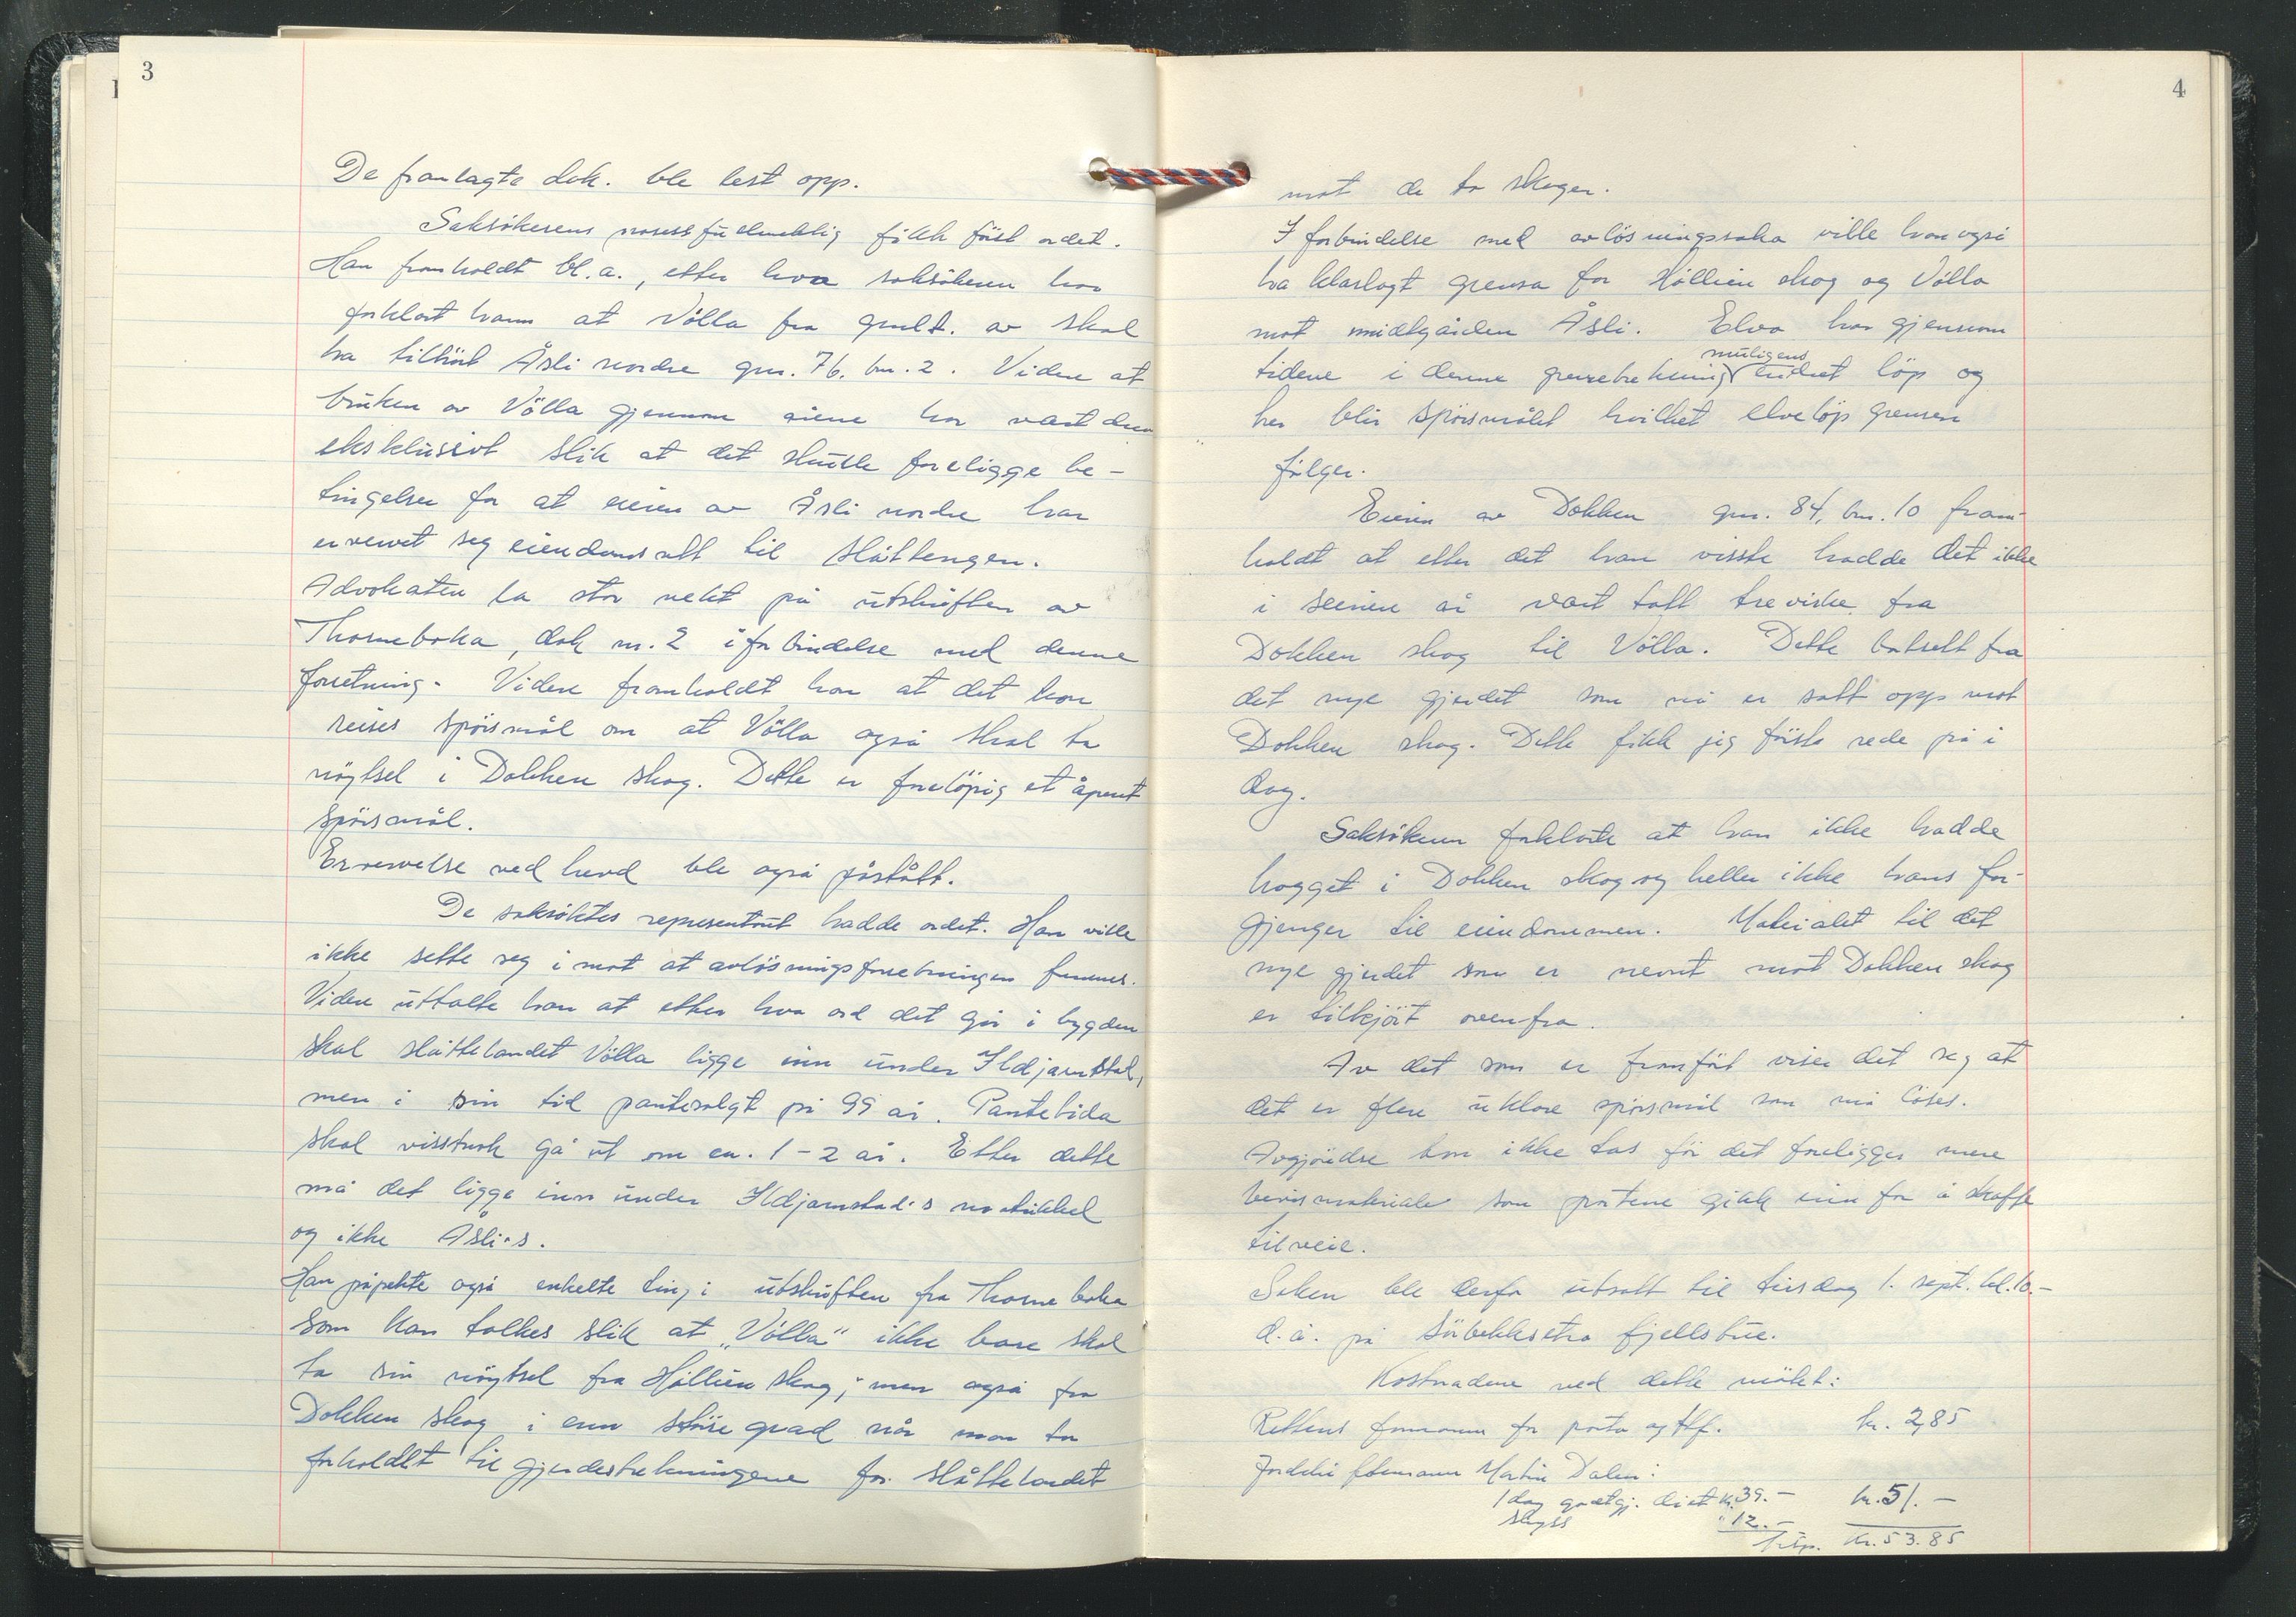 3
De framlagte dok. ble lest opp.
Saksökerens prosessfuldmektig fikk först ordet.
Han framholdt bl.a., etter hva saksökeren har
forklart ham at Völla fra gml.t. av skal
ha tilhört Åsli nordre gnr. 76, bnr. 2. Videre at
bruken av Völla gjennom årene har vært den
eksklusivt slik at det skulle foreligge be-
tingelser for at eieren av Åsli nordre har
ervervet seg eiendomsrett til slåttengen.
Advokaten la stor vekt på utskriften av
Thorneboka, dok nr. 2 i forbindelse med denne
forretning. Videre framholdt han at det kan
reises spörsmål om at Völla også skal ha
nöytsel i Dokken skog. Dette er foreløpig et åpent
spörsmål.
Ervervelse ved hevd ble også påstått.
De saksöktes representant hadde ordet. Han ville
ikke sette seg i mot at avlösningsforretningen fremmes.
Videre uttalte han at etter hva ord det går i bygden
skal slåttelandet Völla ligge inn under Ildjarnstad,
men i sin tid pantesolgt på 99 år. Pantetida
skal visstnok gå ut om ca. 1-2 år. Etter dette
må det ligge inn under Ildjarnstad's matrikkel
og ikke Åsli's.
Han påpekte også enkelte ting i utskriften fra Thorneboka
som kan tolkes slik at „Völla" ikke bare skal
ha sin nöytsel fra Höllien skog, men også fra
Dokken skog i enn større grad når man tar
forholdet til gjerdestrekningene for slåttelandet
4
mot de to skoger.
I forbindelse med avlösningssaka ville han også
ha klarlagt grensa for Höllien skog og Völla
mot midtgården Åsli. Elva har gjennom
muligens
tidene i denne grensetrekning endret löp og
her blir spörsmålet hvilket elveløp grensen
fölger.
Eieren av Dokken gnr. 84, bnr. 10 fram-
holdt at etter det han visste hadde det ikke
i seinere år vært tatt trevirke fra
Dokken skog til Völla. Dette bortsett fra
det nye gjerdet som nå er satt opp mot
Dokken skog. Dette fikk jeg förste rede på i
dag.
Saksökeren forklarte at han ikke hadde
hogget i Dokken skog og heller ikke hans for-
gjenger til eiendommen. Materialet til det
nye gjerdet som er nevnt mot Dokken skog
er tilkjört ovenfra.
Av det som er framfört viser det seg at
det er flere uklare spörsmål som må löses.
Avgjörelse kan ikke tas för det foreligger mere
bevismateriale som partene gikk inn for å skaffe
tilveie.
Saken ble derfor utsatt til tirsdag 1. sept. kl. 10.-
d.å. på Sörbekkseta fjellstue.
Kostnadene ved dette mötet:
Rettens formann for porto og tlf. kr. 2,85
Jordskifteformann Martin Dalen:
1 dag godtgj. diet kr. 39.- kr. 51.-
skyss " 12.-
Tilsp. kr. 53.85